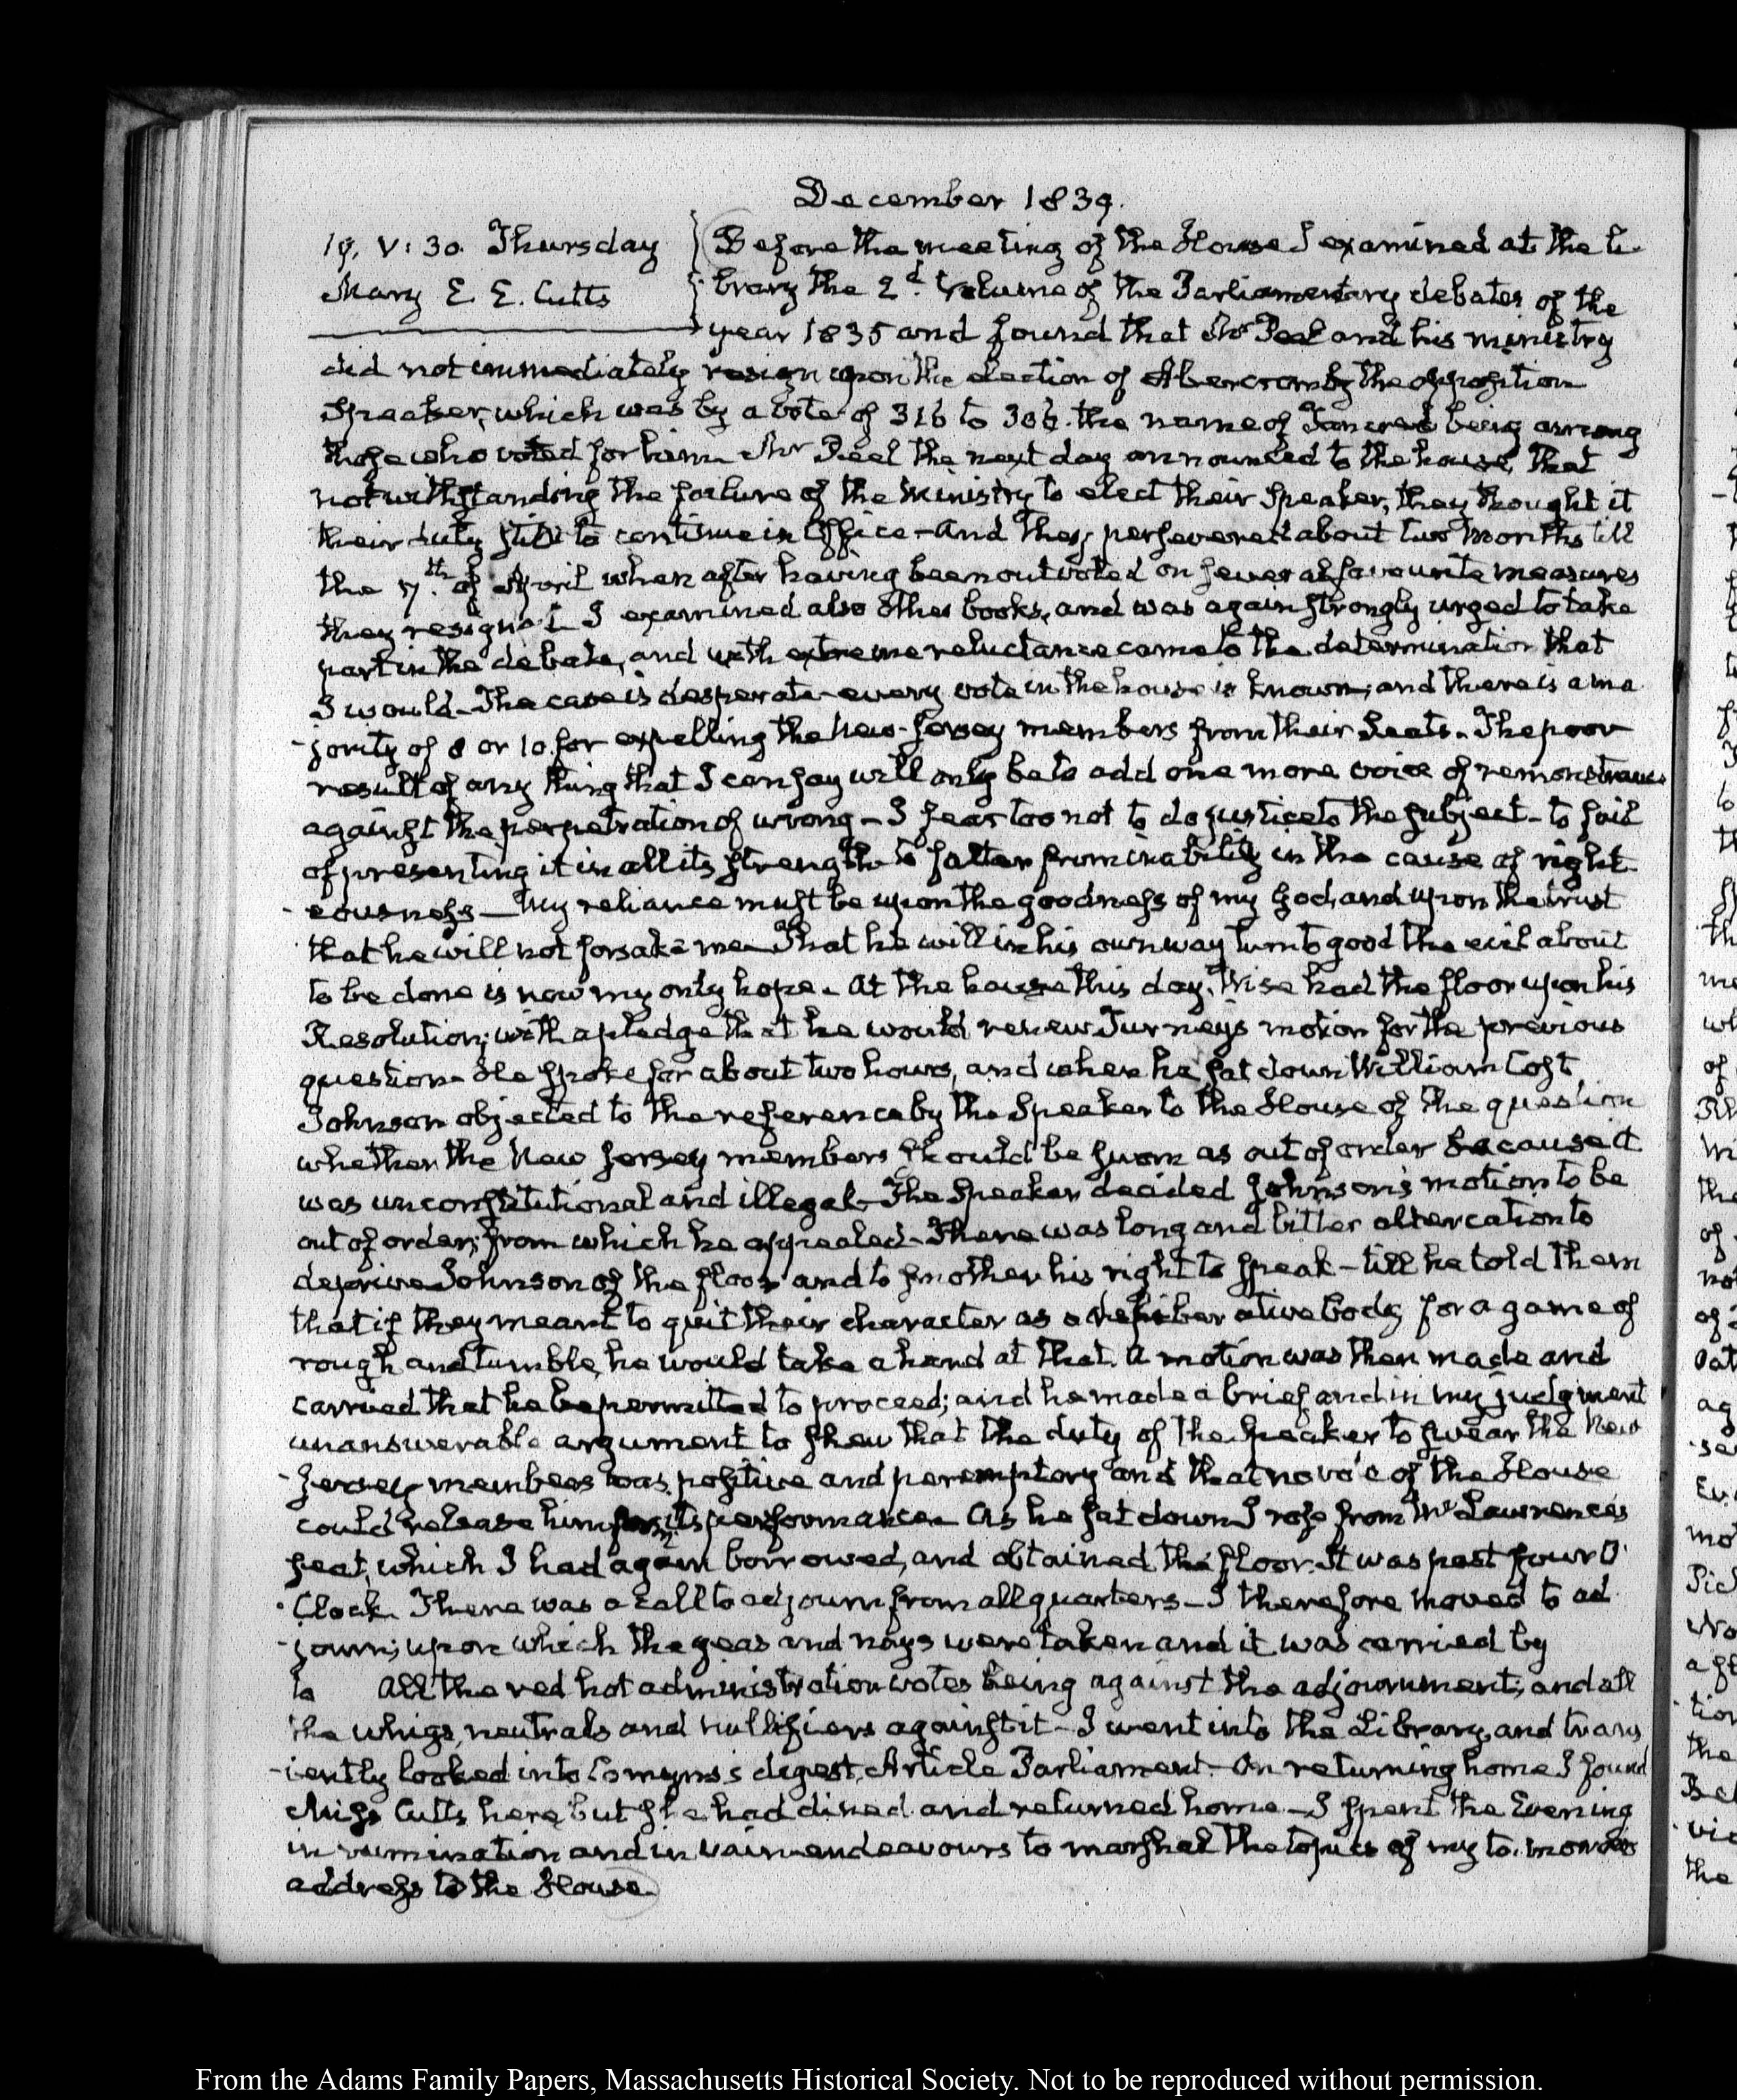 December 1839.
19. V:30. Thursday
Mary E. E. Cutts
Before the meeting of the House I examined at the li-
brary the 2d. volume of the Parliamentary debates of the
year 1835 and found that Mr Peel and his ministry
did not immediately resign upon the election of Abercromby the opposition
Speaker, which was by a vote of 316 to 306. the name of Tancred being among
those who voted for him. Mr Peel the next day announced to the house, that
notwithstanding the failure of the Ministry to elect their Speaker, they thought it
their duty still to continue in Office—And they persevered about two months till
the 7th. of April when after having been outvoted on several favourite measures
they resigned. I examined also other books, and was again strongly urged to take
part in the debate, and with extreme reluctance came to the determination that
I would—The case is desperate—every vote in the house is known; and there is a ma
-jority of 8 or 10. for expelling the New-Jersey members from their Seats. The poor
result of any thing that I can say will only be to add one more voice of remonstrance
against the perpetration of wrong—I fear too not to do justice to the subject—to fail
of presenting it in all its strength to falter from inability in the cause of right-
-eousness—My reliance must be upon the goodness of my God, and upon the trust
that he will not forsake me—That he will in his own way turn to good the evil about
to be done is now my only hope. At the house this day, Wise had the floor upon his
Resolution; with a pledge that he would renew Turney's motion for the previous
question—He spoke for about two hours, and when he sat down William Cost
Johnson objected to the reference by the Speaker to the House of the question
whether the New Jersey members should be sworn as out of order because it
was unconstitutional and illegal—The Speaker decided Johnson's motion to be
out of order; from which he appealed—There was long and bitter altercation to
deprive Johnson of the floor and to smother his right to speak—till he told them
that if they meant to quit their character as a deliberative body for a game of
rough and tumble, he would take a hand at that. A motion was then made and
carried that he be permitted to proceed; and he made a brief and in my judgment
unanswerable argument to shew that the duty of the Speaker to swear the New
-Jersey members was positive and peremptory and that no vote of the House
could release him from its performance. As he sat down I rose from Mr Lawrence's
seat, which I had again borrowed, and obtained the floor. It was past four O'
Clock. There was a call to adjourn from all quarters—I therefore moved to ad
-journ; upon which the yeas and nays were taken and it was carried by
to All the red hot administration votes being against the adjournment; and all
the whigs, neutrals and nullifiers against it—I went into the Library, and trans
-iently looked into Comyns's digest, Article Parliament. On returning home I found
Miss Cutts here, but she had dined and returned home—I spent the Evening
in rumination and in vain endeavours to marshal the topics of my to-morrow's
address to the House.
From the Adams Family Papers, Massachusetts Historical Society. Not to be reproduced without permission.